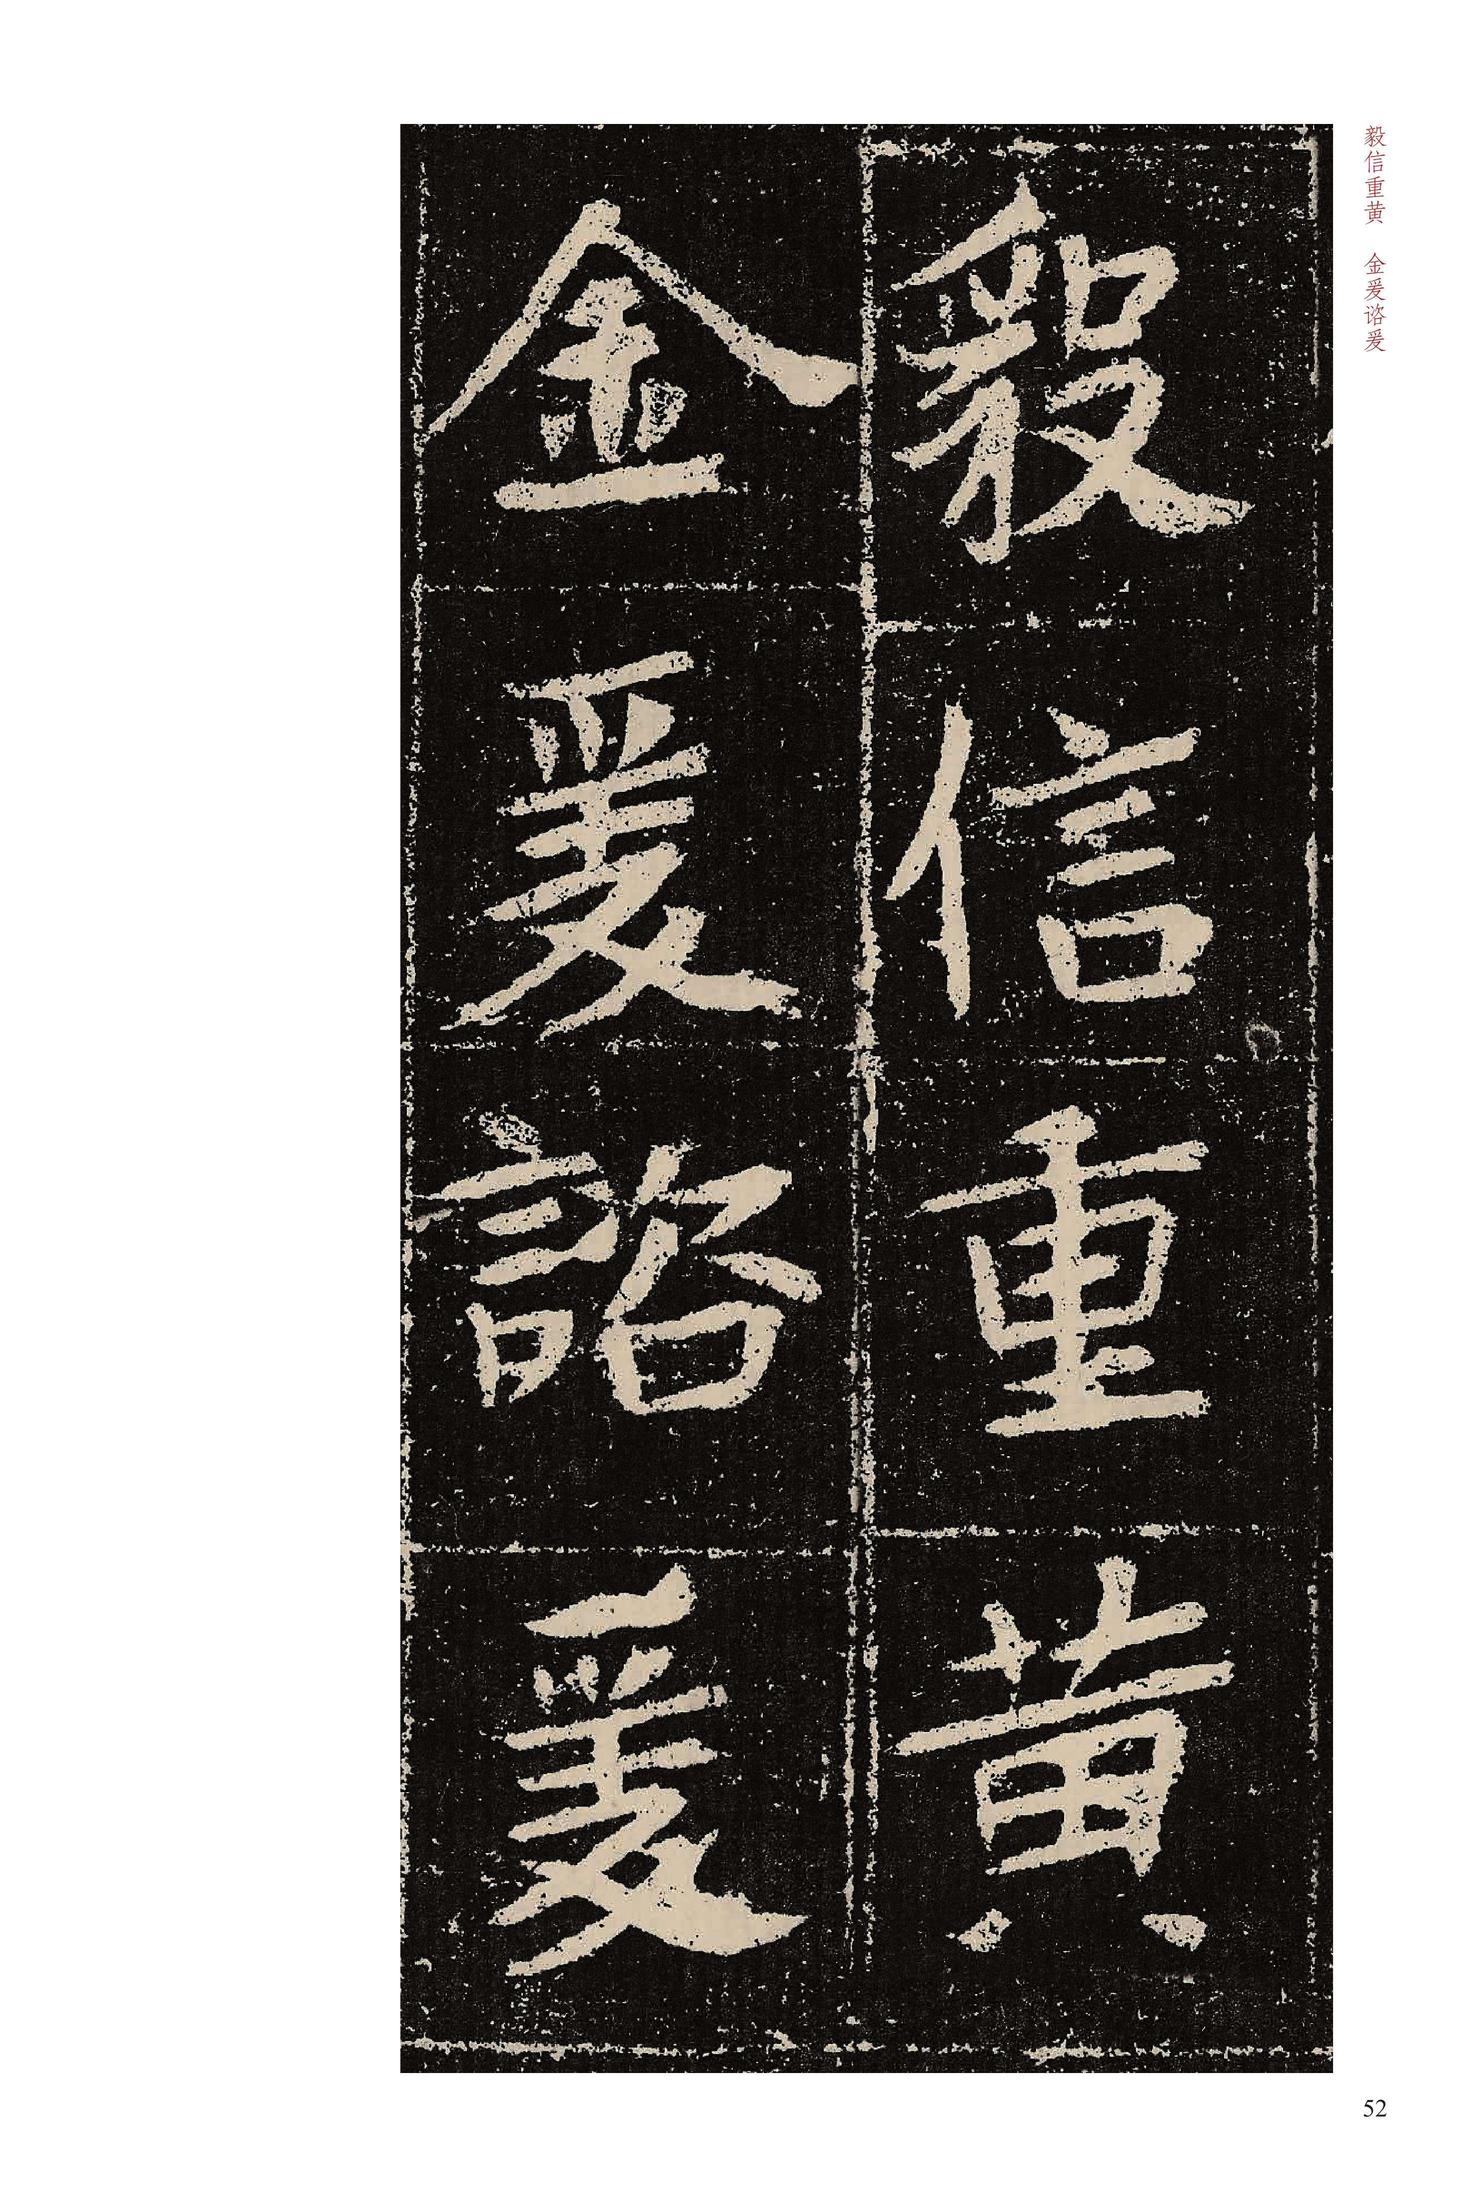 毅信重黄　金爰谘爰
毅信重黄
金爰諮爰
52